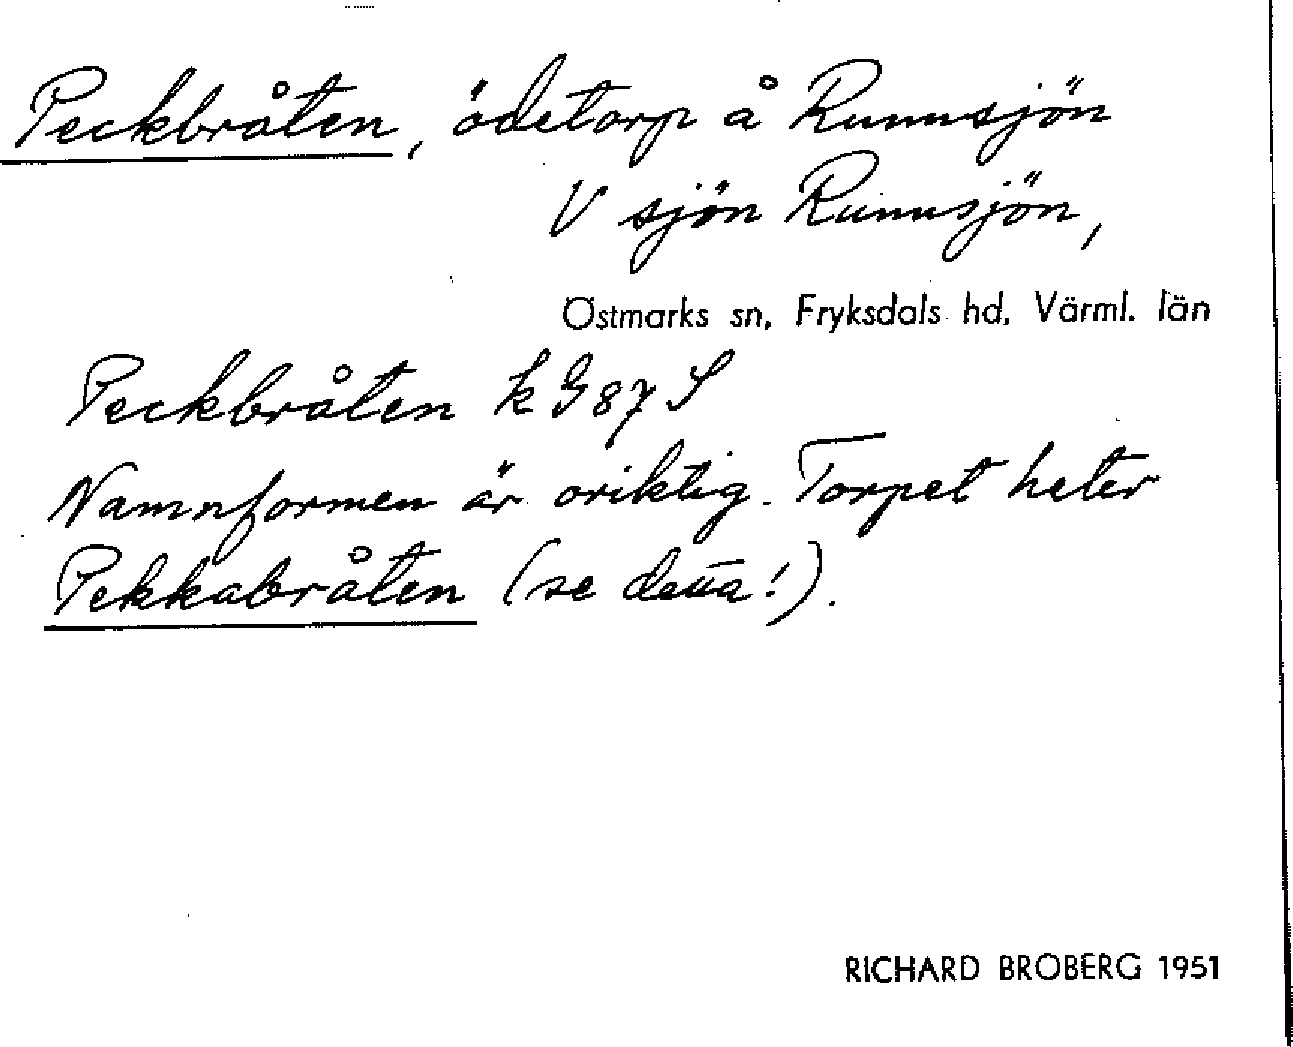 Peckbråten, ödetorp å Runnsjön
V sjön Runnsjön,
Östmarks sn, Fryksdals hd, Värml. län
Peckbråten k G 87 S
Namnformen är oriktig. Torpet heter
Pekkabråten (se detta!).
RICHARD BROBERG 1951